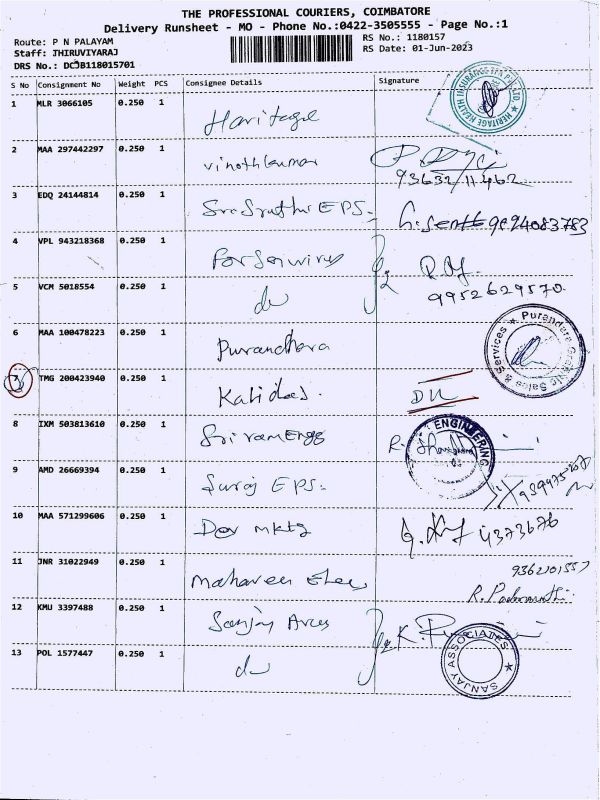 THE PROFESSIONAL COURIERS, COIMBATORE
Delivery Runsheet - MO - Phone No.:0422-3505555 - Page No.:1
Route: P N PALAYAM
RS No.: 1180157
Staff: JHIRUVIYARAJ
RS Date: 01-Jun-2023
DRS No.: DCJB118015701
S No Consignment No Weight PCS Consignee Details Signature
1 MLR 3066105 0.250 1 Haritage
HERITAGE HEALTH INSURANCE TPA PVT. LTD.
2 MAA 297442297 0.250 1 vinothkumar
93632/11462
3 EDQ 24144814 0.250 1 Sri Sruthi EPS.
4 VPL 943218368 0.250 1
5 VCM 5018554 0.250 1 do
9952629570
6 MAA 100478223 0.250 1 Purandhara
Purandara Sales & Services
7 TMG 200423940 0.250 1 Kalidas.
DU
8 IXM 503813610 0.250 1 Sri ram Engg
ENGINEERING
9 AMD 26669394 0.250 1 Suraj EPS.
10 MAA 571299606 0.250 1 Dev mktg
4373676
11 JNR 31022949 0.250 1 Mahaveer Elec
12 KMU 3397488 0.250 1 Sanjay
13 POL 1577447 0.250 1 do
SANJAY ASSOCIATES